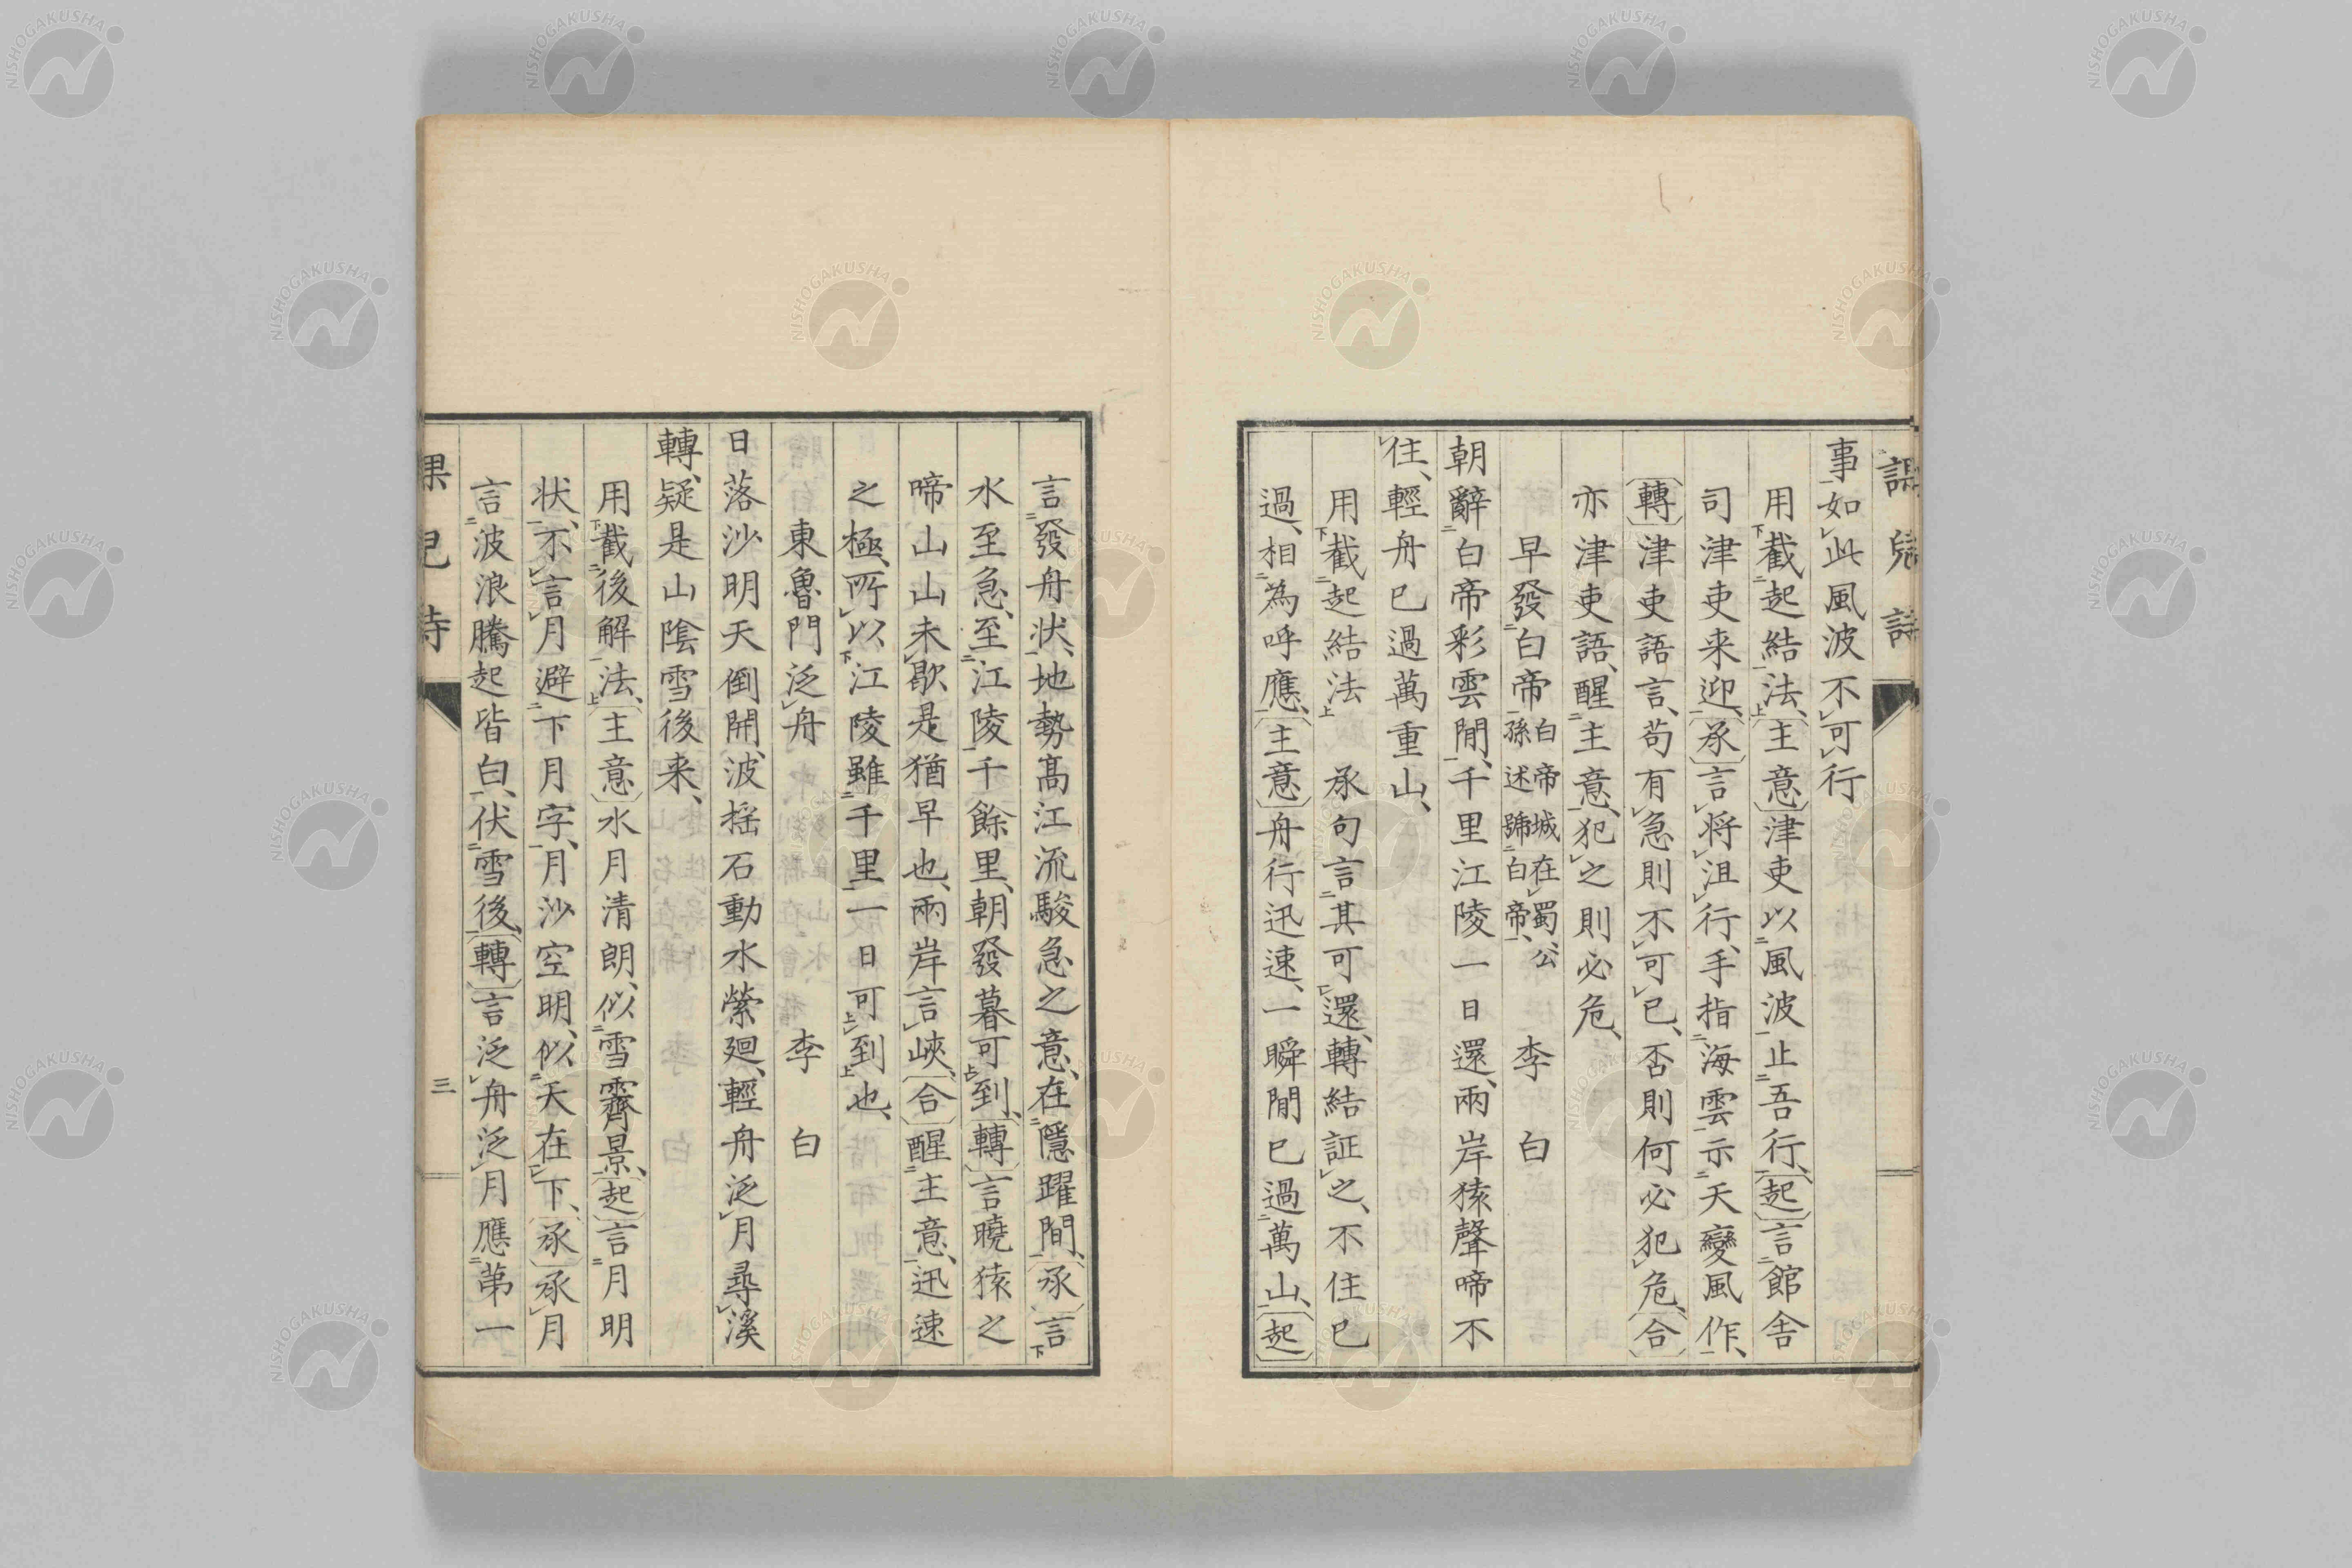 課兒詩
事如此風波不可行
用截起結法、〔主意〕津吏以風波止吾行、〔起〕言館舍
司津吏来迎、〔承〕言将沮行、手指海雲示天變風作、
〔轉〕津吏語言、苟有急則不可已、否則何必犯危、〔合〕
亦津吏語、醒主意、犯之則必危、
早發白帝 白帝城在蜀公孫述號白帝、 李 白
朝辭白帝彩雲間、千里江陵一日還、兩岸猿聲啼不
住、輕舟已過萬重山、
用截起結法 承句言其可還、轉結証之、不住已
過、相為呼應、〔主意〕舟行迅速、一瞬間已過萬山、〔起〕
言發舟状、地勢髙江流駿急之意、在隱躍間、〔承〕言
水至急、至江陵千餘里、朝發暮可到、〔轉〕言曉猿之
啼山山未歇、是猶早也、兩岸言峽、〔合〕醒主意、迅速
之極、所以江陵雖千里一日可到也、
東魯門泛舟 李 白
日落沙明天倒開、波揺石動水縈廻、輕舟泛月尋溪
轉、疑是山陰雪後来、
用截後解法、〔主意〕水月清朗、似雪霽景、〔起〕言月明
状、不言月避下月字、月沙空明、似天在下、〔承〕承月
言波浪騰起皆白、伏雪後、〔轉〕言泛舟泛月應第一
課兒詩
三
NISHOGAKUSHA